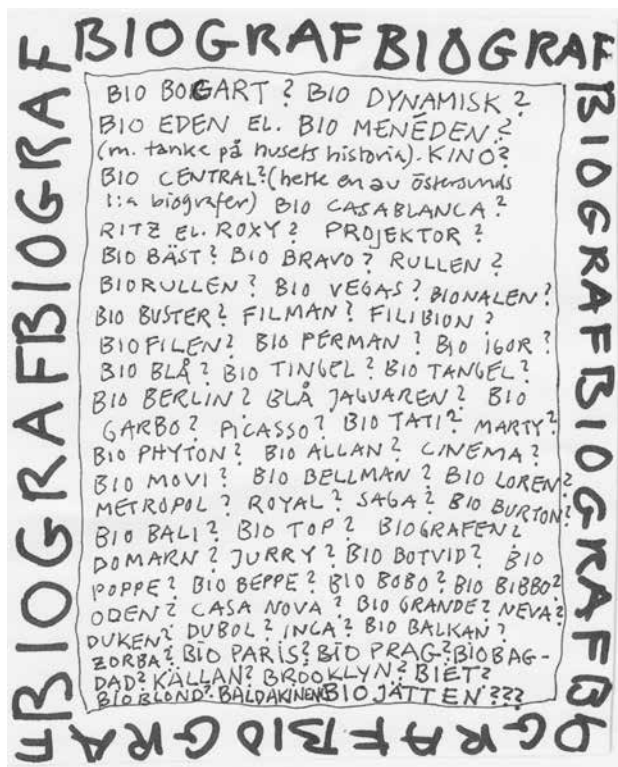 BIOGRAF BIOGRAF
BIOGRAF BIOGRAF B
BIO BOGART? BIO DYNAMISK?
BIO EDEN EL. BIO MENÉDEN?
(m. tanke på husets historia). KINO?
BIO CENTRAL? (hette en av östersunds
1:a biografer) BIO CASABLANCA?
RITZ EL. ROXY? PROJEKTOR?
BIO BÄST? BIO BRAVO? RULLEN?
BIORULLEN? BIO VEGAS? BIONALEN?
BIO BUSTER? FILMAN? FILIBION?
BIOFILEN? BIO PERMAN? BIO IGOR?
BIO BLÅ? BIO TINGEL? BIO TANGEL?
BIO BERLIN? BLÅ JAGUAREN? BIO
GARBO? PICASSO? BIO TATI? MARTY?
BIO PHYTON? BIO ALLAN? CINEMA?
BIO MOVI? BIO BELLMAN? BIO LOREN?
METROPOL? ROYAL? SAGA? BIO BURTON?
BIO BALI? BIO TOP? BIOGRAFEN?
DOMARN? JURRY? BIO BOTVID? BIO
POPPE? BIO BEPPE? BIO BOBO? BIO BIBBO?
ODEN? CASA NOVA? BIO GRANDE? NEVA?
DUKEN? DUBOL? INCA? BIO BALKAN?
ZORBA? BIO PARIS? BIO PRAG? BIOBAG-
DAD? KÄLLAN? BROOKLYN? BIET?
BIO BLOND? BALDAKINEN BIOJÄTTEN???
IOGRAF BIOGRAF
BIOGRAF BIOGRAF